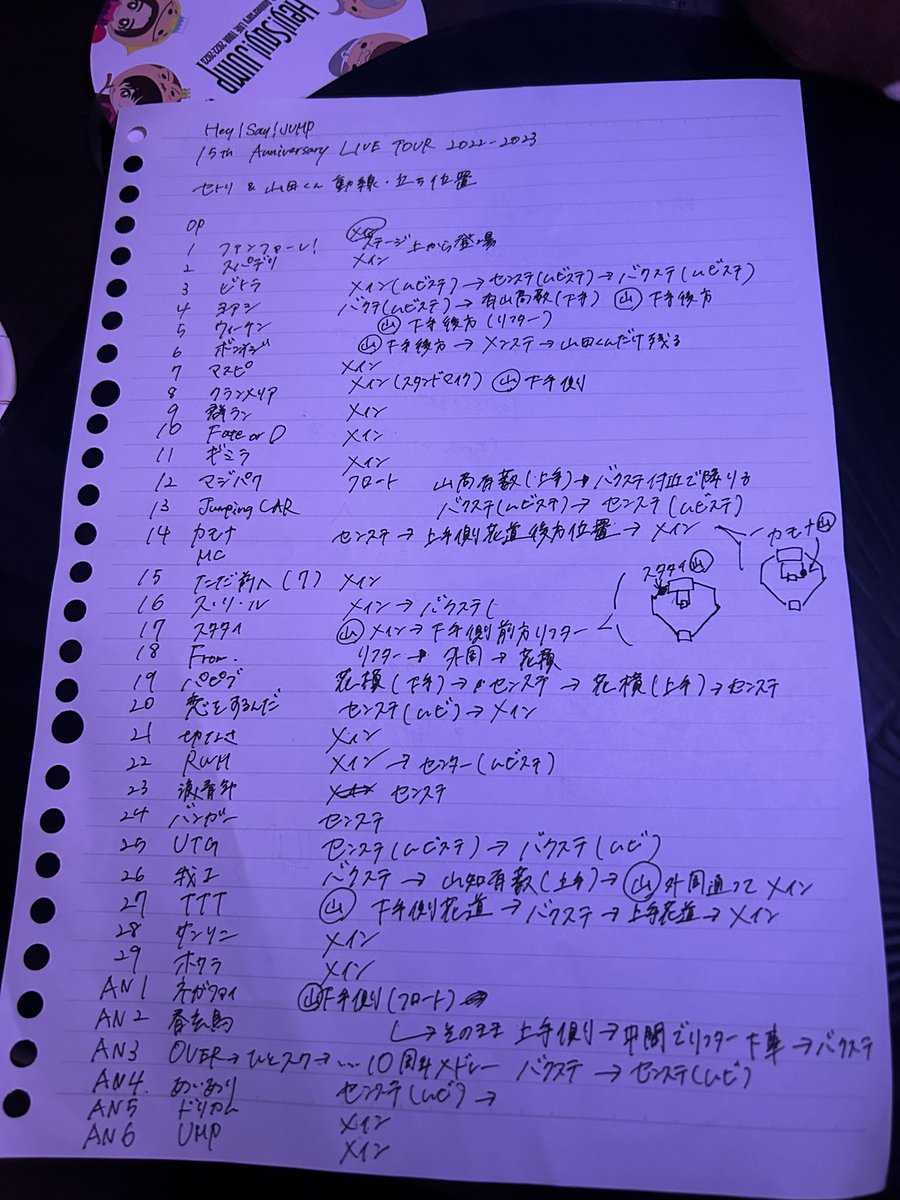 Hey!Say!JUMP
Anniversary LIVE TOUR 2022-2023
Hey!Say!JUMP
15th Anniversary LIVE TOUR 2022-2023
セトリ & 山田くん 動線・立ち位置
OP
1 ファンファーレ! ステージ上から登場
2 スパデリ メイン
3 ビトラ メイン(ムビステ)→センステ(ムビステ)→バクステ(ムビステ)
4 ヨアシ バクテ(ムビステ)→有山髙薮(下手) 山 下手後方
5 ウィーケン 山 下手後方(リフター)
6 ボンオジ 山 下手後方→メンステ→山田くんだけ残る
7 マスピ メイン
8 クランメリア メイン(スタンドマイク) 山 下手側
9 群ラン メイン
10 Fate or D メイン
11 ギミラ メイン
12 マジパワ フロート 山髙有薮(上手)→バクステ付近で降りる
13 Jumping CAR バクステ(ムビステ)→センステ(ムビステ)
14 カモナ センステ→上手側花道後方位置→メイン
カモナ 山
MC
15 ただ前へ(7) メイン
スタタイ 山
16 ス・リ・ル メイン→バクステ(
17 スタタイ 山 メイン→下手側前方リフター
18 From. リフター→外周→花横
19 パピブ 花横(下手)→センステ→花横(上手)→センステ
20 恋をするんだ センステ(ムビ)→メイン
21 切なさ メイン
22 RWM メイン→センター(ムビステ)
23 浪青年 センステ
24 バンガー センステ
25 UTG センステ(ムビステ)→バクステ(ムビ)
26 我工 バクステ→山知有薮(上手)→山 外周通って メイン
27 TTT 山 下手側花道→バクステ→上手花道→メイン
28 サンリニ メイン
29 ホワラ メイン
AN1 ネガファイ 山 下手側(フロート)
AN2 春玄鳥 →そのまま 上手側→中間でリフター下車→バクステ
AN3 OVER→ひとスク→…10周年メドレー バクステ→センステ(ムビ)
AN4 あいあり センステ(ムビ)→
AN5 ドリカム メイン
AN6 UMP メイン